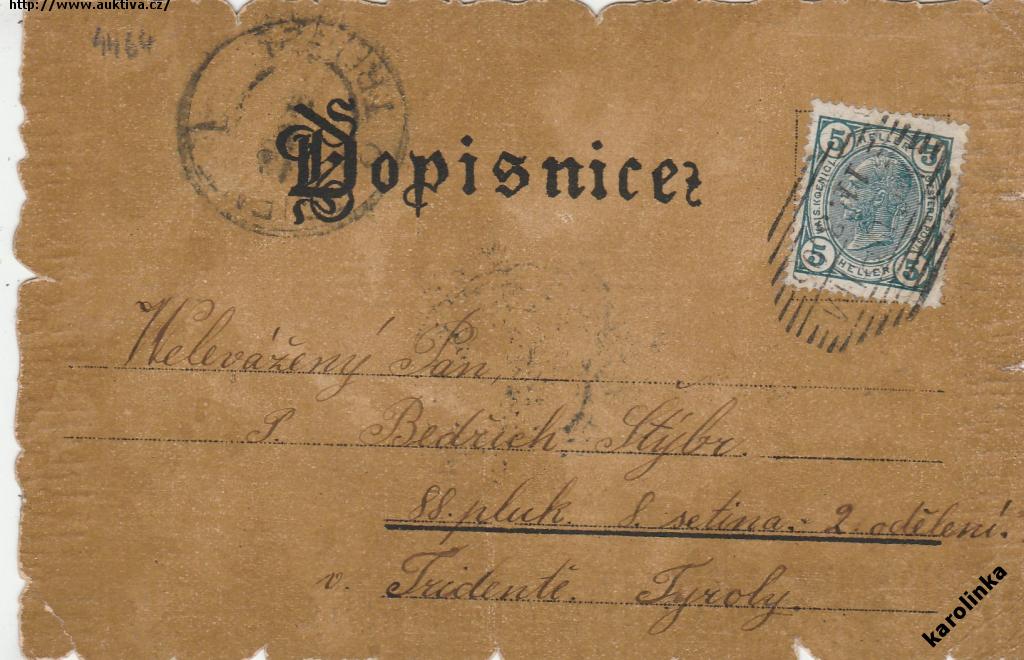 http://www.auktiva.cz/
4464
Dopisnice
5 5
KAIS. KOENIGL.
HELLER
5 5
Veleváženy Pán,
P. Bedřich Stýbr.
88. pluk. 8. setina. 2 odělení.
v. Tridentě. Tyroly.
karolinka